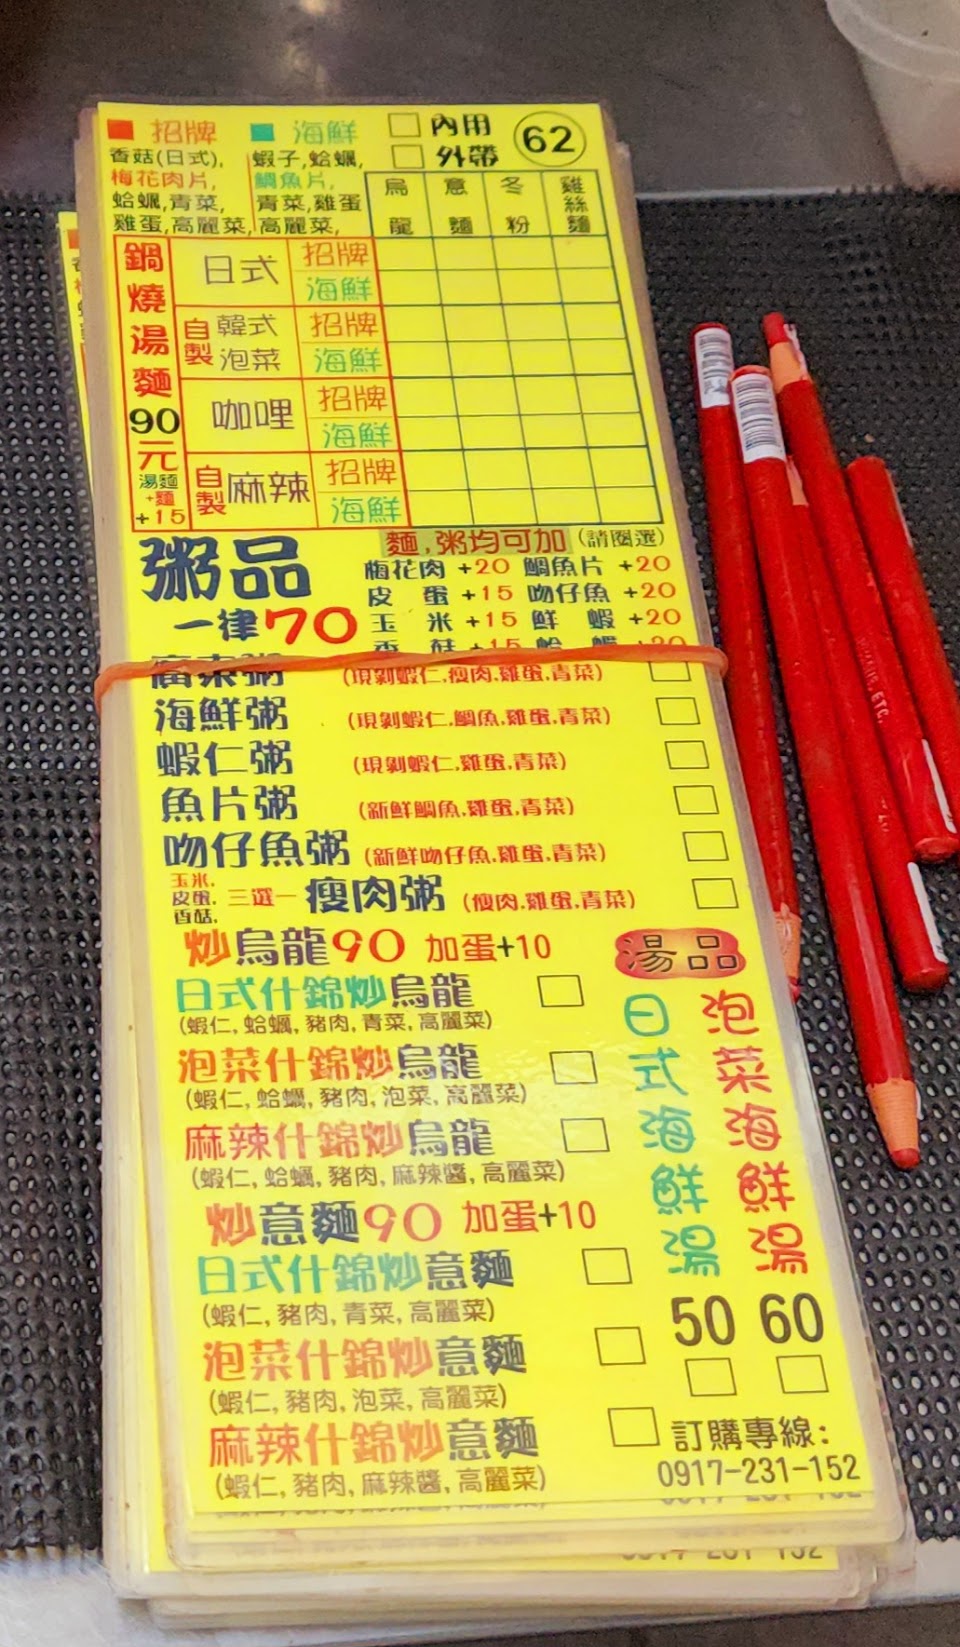 招牌 海鮮 內用 62
香菇(日式), 蝦子,蛤蠣, 外帶
梅花肉片, 鯛魚片,
蛤蠣,青菜, 青菜,雞蛋
雞蛋,高麗菜, 高麗菜,
烏龍 意麵 冬粉 雞絲麵
鍋燒湯麵90元
湯麵
+麵
+15
日式 招牌
海鮮
自製 韓式泡菜 招牌
海鮮
咖哩 招牌
海鮮
自製 麻辣 招牌
海鮮
粥品
一律70
麵,粥均可加 (請圈選)
梅花肉 +20 鯛魚片 +20
皮蛋 +15 吻仔魚 +20
玉米 +15 鮮蝦 +20
廣東粥 (現剝蝦仁,瘦肉,雞蛋,青菜)
海鮮粥 (現剝蝦仁,鯛魚,雞蛋,青菜)
蝦仁粥 (現剝蝦仁,雞蛋,青菜)
魚片粥 (新鮮鯛魚,雞蛋,青菜)
吻仔魚粥 (新鮮吻仔魚,雞蛋,青菜)
玉米,
皮蛋, 三選一 瘦肉粥 (瘦肉,雞蛋,青菜)
香菇,
炒烏龍90 加蛋+10
日式什錦炒烏龍
(蝦仁, 蛤蠣, 豬肉, 青菜, 高麗菜)
泡菜什錦炒烏龍
(蝦仁, 蛤蠣, 豬肉, 泡菜, 高麗菜)
麻辣什錦炒烏龍
(蝦仁, 蛤蠣, 豬肉, 麻辣醬, 高麗菜)
炒意麵90 加蛋+10
日式什錦炒意麵
(蝦仁, 豬肉, 青菜, 高麗菜)
泡菜什錦炒意麵
(蝦仁, 豬肉, 泡菜, 高麗菜)
麻辣什錦炒意麵
(蝦仁, 豬肉, 麻辣醬, 高麗菜)
湯品
日式海鮮湯 50
泡菜海鮮湯 60
訂購專線:
0917-231-152